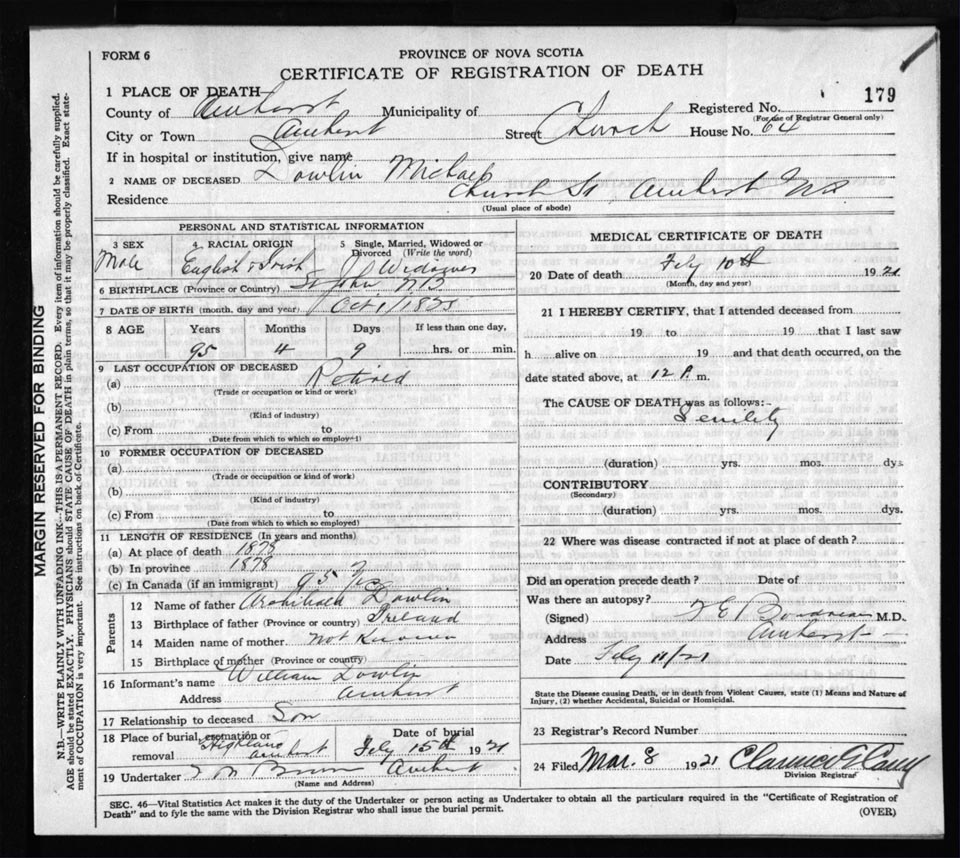 FORM 6
PROVINCE OF NOVA SCOTIA
CERTIFICATE OF REGISTRATION OF DEATH
179
1 PLACE OF DEATH—
County of Amherst Municipality of Registered No.
(For use of Registrar General only)
City or Town Amherst Street Church House No. 64
If in hospital or institution, give name
2 NAME OF DECEASED Dowlin Michael
Residence Church St, Amherst NS
(Usual place of abode)
PERSONAL AND STATISTICAL INFORMATION
3 SEX 4 RACIAL ORIGIN 5 Single, Married, Widowed or Divorced (Write the word)
Male English & Irish Widower
6 BIRTHPLACE (Province or Country) St John NB
7 DATE OF BIRTH (month, day and year) Oct 1/1825
8 AGE Years Months Days If less than one day,
95 4 9 hrs. or min.
9 LAST OCCUPATION OF DECEASED
(a) Retired
(Trade or occupation or kind or work)
(b)
(Kind of industry)
(c) From to
(Date from which to which so employed)
10 FORMER OCCUPATION OF DECEASED
(a)
(Trade or occupation or kind of work)
(b)
(Kind of industry)
(c) From to
(Date from which to which so employed)
11 LENGTH OF RESIDENCE (In years and months)
(a) At place of death 1878
(b) In province 1878
(c) In Canada (if an immigrant) 95
Parents
12 Name of father Archibald Dowlin
13 Birthplace of father (Province or country) Ireland
14 Maiden name of mother Not Known
15 Birthplace of mother (Province or country)
16 Informant's name William Dowlin
Address Amherst
17 Relationship to deceased Son
18 Place of burial, cremation or removal Date of burial
Highland Amherst Feby 15th 1921
19 Undertaker Amherst
(Name and Address)
MEDICAL CERTIFICATE OF DEATH
20 Date of death Feby 10th 1921
(Month, day and year)
21 I HEREBY CERTIFY, that I attended deceased from
19 to 19 that I last saw
h alive on 19 and that death occurred, on the
date stated above, at 12 P. m.
The CAUSE OF DEATH was as follows:-
Senility
(duration) yrs. mos. dys.
CONTRIBUTORY
(Secondary)
(duration) yrs. mos. dys.
22 Where was disease contracted if not at place of death?
Did an operation precede death? Date of
Was there an autopsy?
(Signed) M.D.
Address Amherst
Date Feby 11/21
State the Disease causing Death, or in death from Violent Causes, state (1) Means and Nature of
Injury, (2) whether Accidental, Suicidal or Homicidal.
23 Registrar's Record Number
24 Filed Mar. 8 1921 Clarence
Division Registrar
SEC. 46—Vital Statistics Act makes it the duty of the Undertaker or person acting as Undertaker to obtain all the particulars required in the "Certificate of Registration of
Death" and to fyle the same with the Division Registrar who shall issue the burial permit.
(OVER)
MARGIN RESERVED FOR BINDING
N.B.—WRITE PLAINLY WITH UNFADING INK—THIS IS A PERMANENT RECORD. Every item of information should be carefully supplied.
AGE should be stated EXACTLY. PHYSICIANS should STATE CAUSE OF DEATH in plain terms, so that it may be properly classified. Exact state-
ment of OCCUPATION is very important. See instructions on back of Certificate.